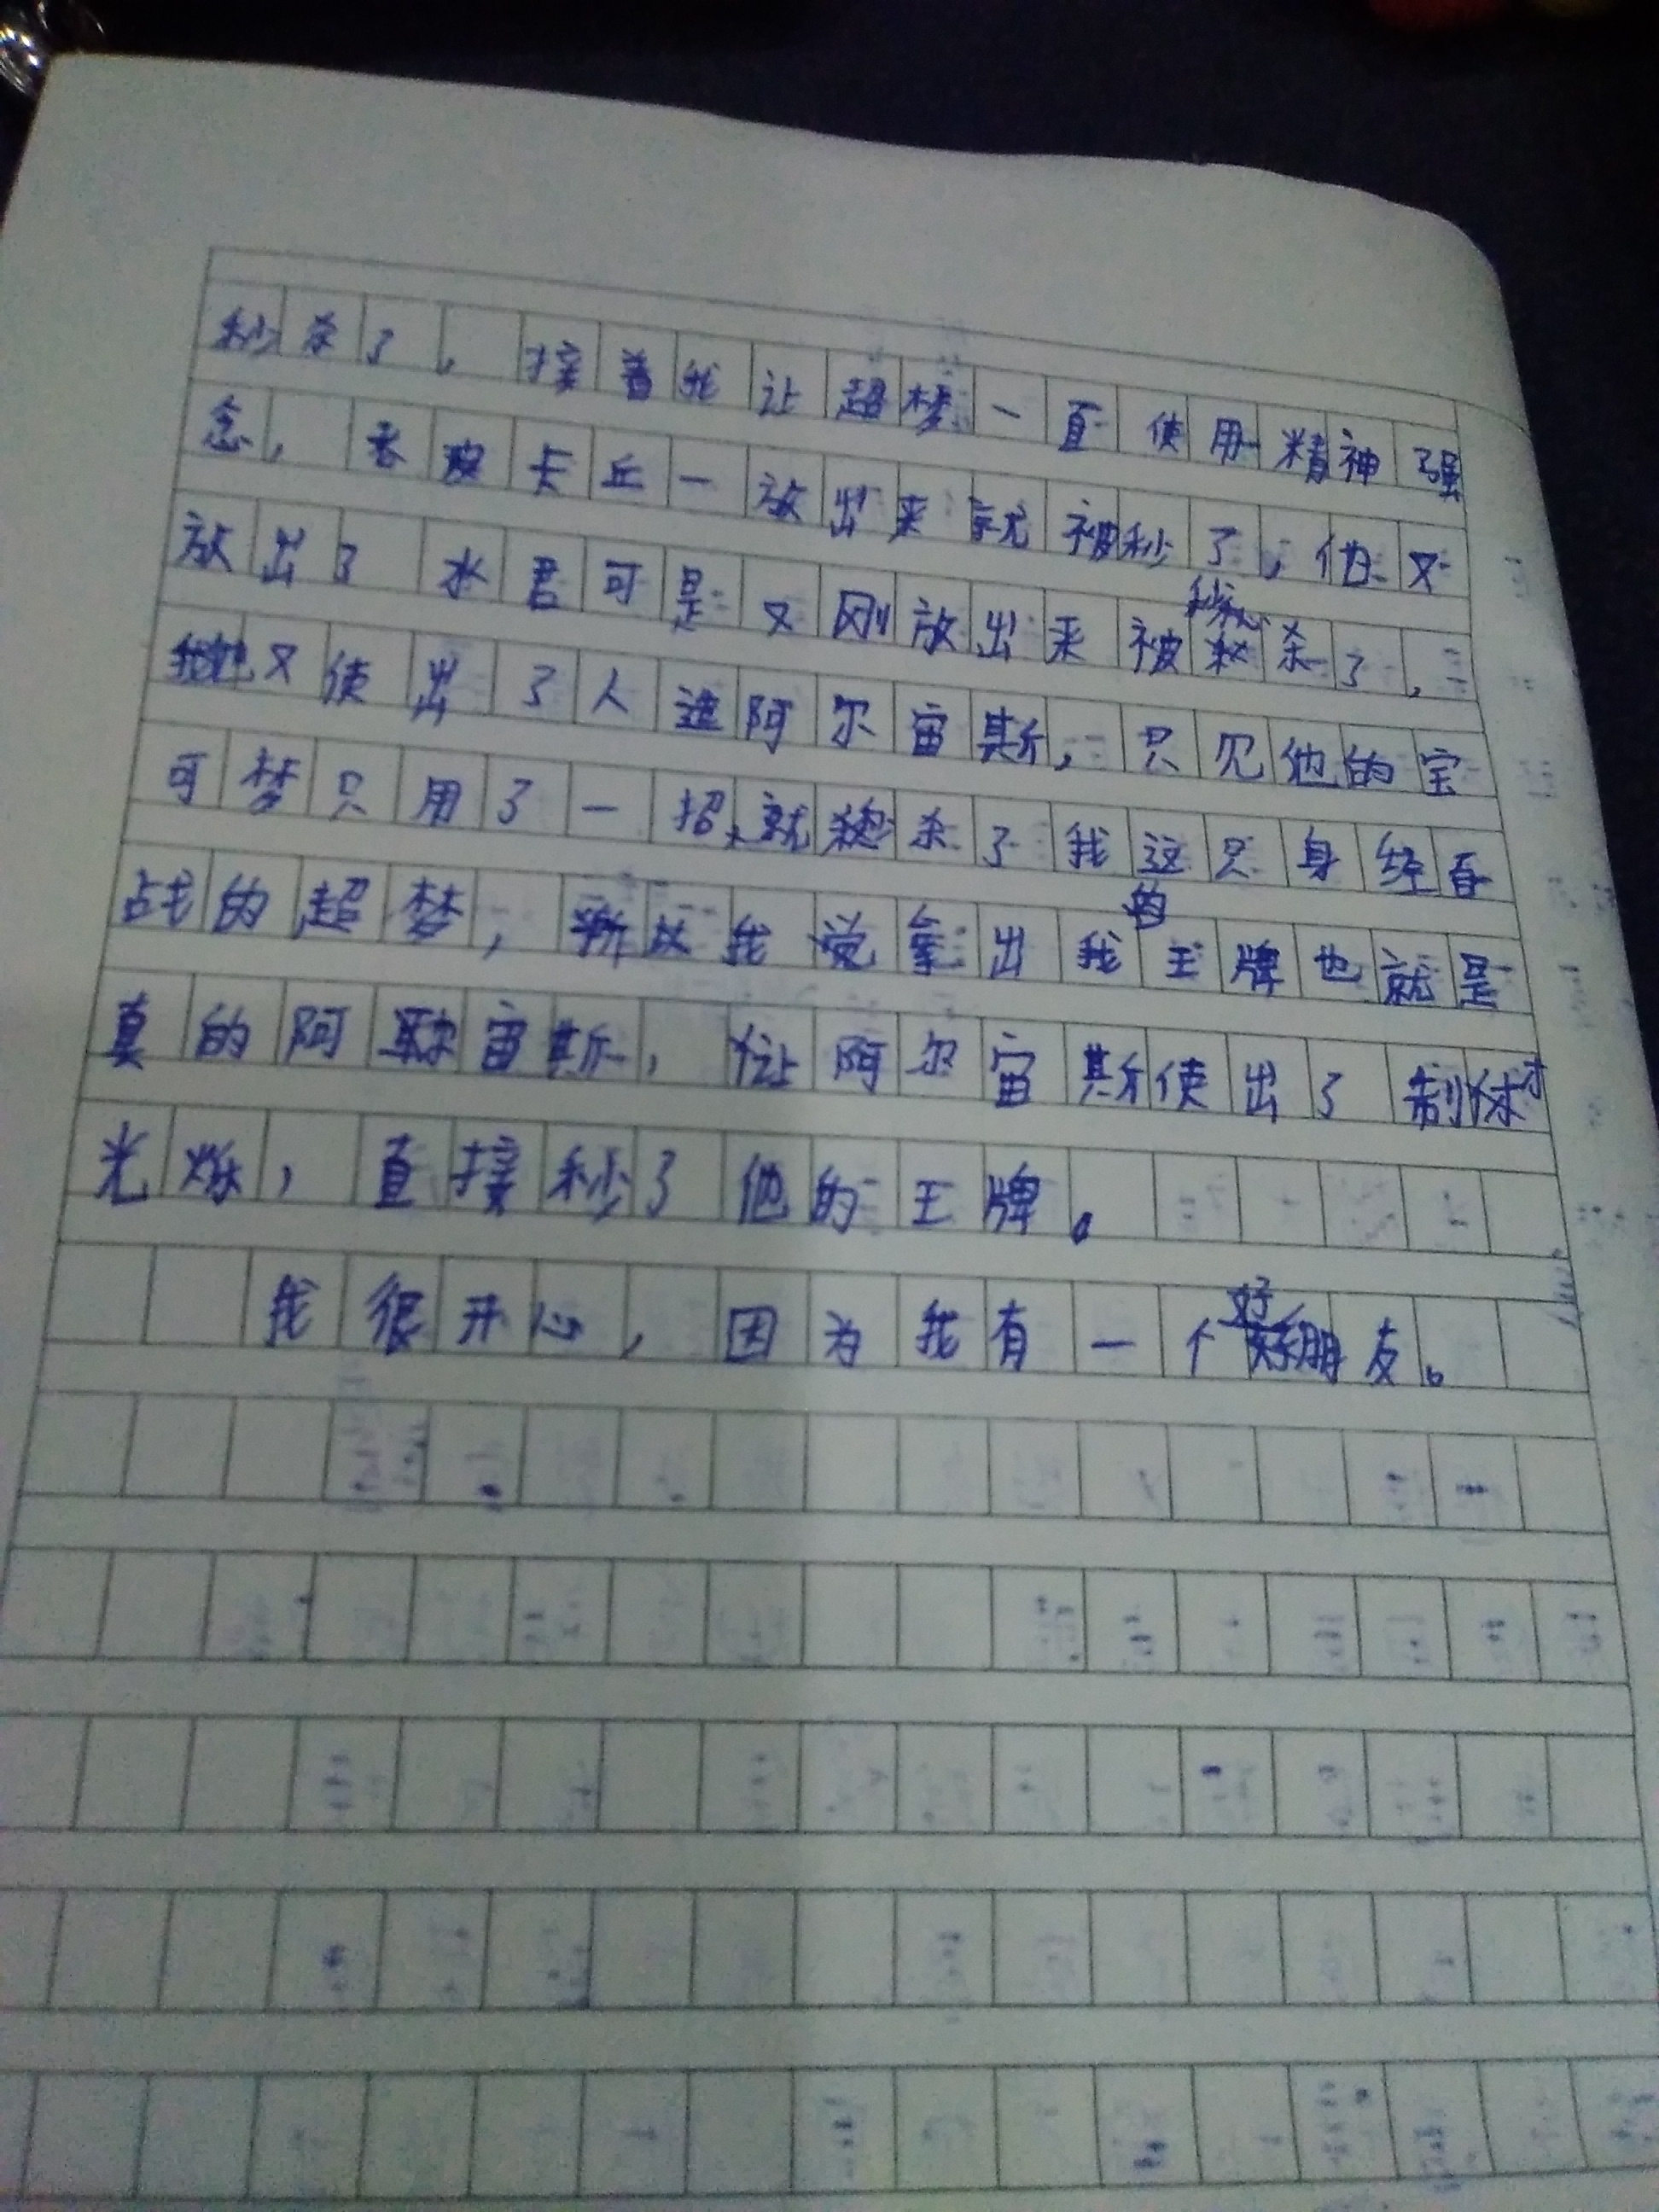 秒杀了，接着我让超梦一直使用精神强
念，皮卡丘一放出来就被秒了，他又
放出了水君可是又刚放出来被秒杀了，
他又使出了人造阿尔宙斯，只见他的宝
可梦只用了一招，就秒杀了我这只身经百
战的超梦，所以我觉拿出我的王牌也就是
真的阿尔宙斯，让阿尔宙斯使出了制裁
光烁，直接秒了他的王牌。
我很开心，因为我有一个好朋友。